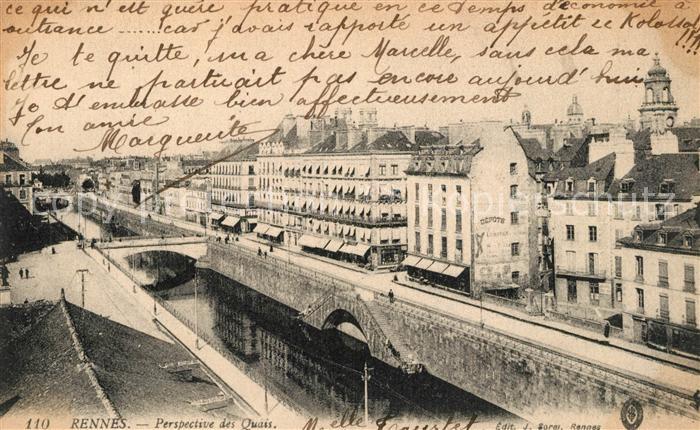 ce qui n'est guère pratique en ce temps d'économie à
outrance ........ car j'avais rapporté un appétit de Kolossal !!!
Je te quitte, ma chère Marcelle, sans cela ma
lettre ne partirait pas encore aujourd'hui
Je t'embrasse bien affectueusement
Ton amie
Marguerite
DÉPÔTS
110 RENNES. — Perspective des Quais.
Édit. J. Sorel, Rennes